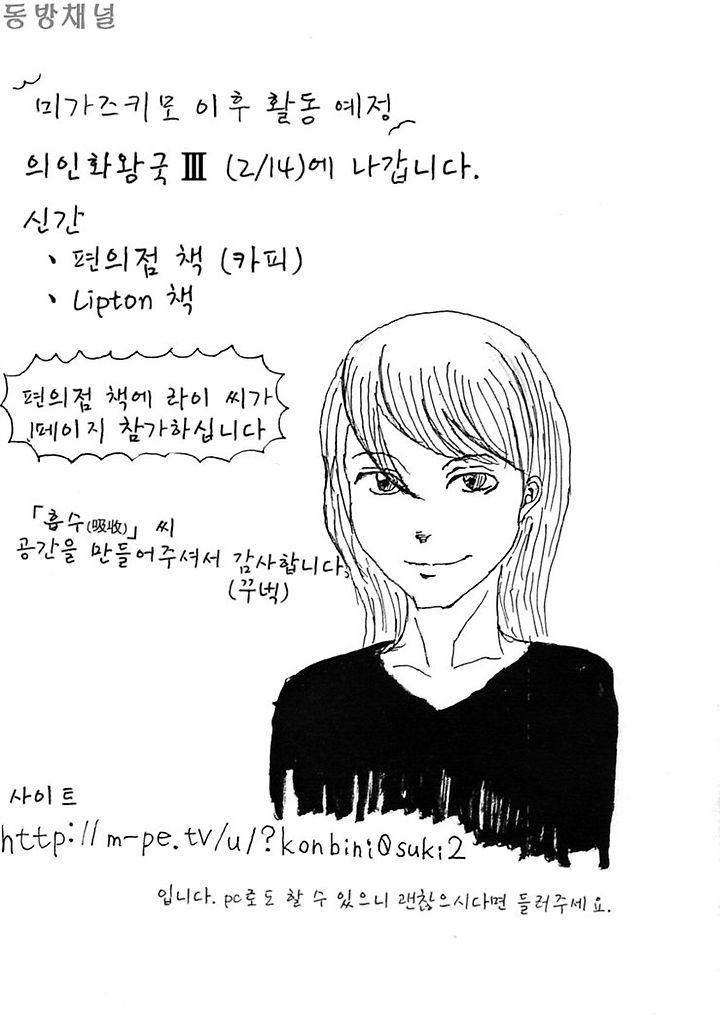 동방채널
미가즈키모 이후 활동 예정
의인화왕국 Ⅲ (2/14)에 나갑니다.
신간
、편의점 책 (카피)
、Lipton 책
편의점 책에 라이 씨가
1페이지 참가하십니다
「흡수(吸收)」 씨
공간을 만들어주셔서 감사합니다.
(꾸벅)
사이트
http://m-pe.tv/u/?konbini0suki2
입니다. pc로도 할 수 있으니 괜찮으시다면 들러주세요.